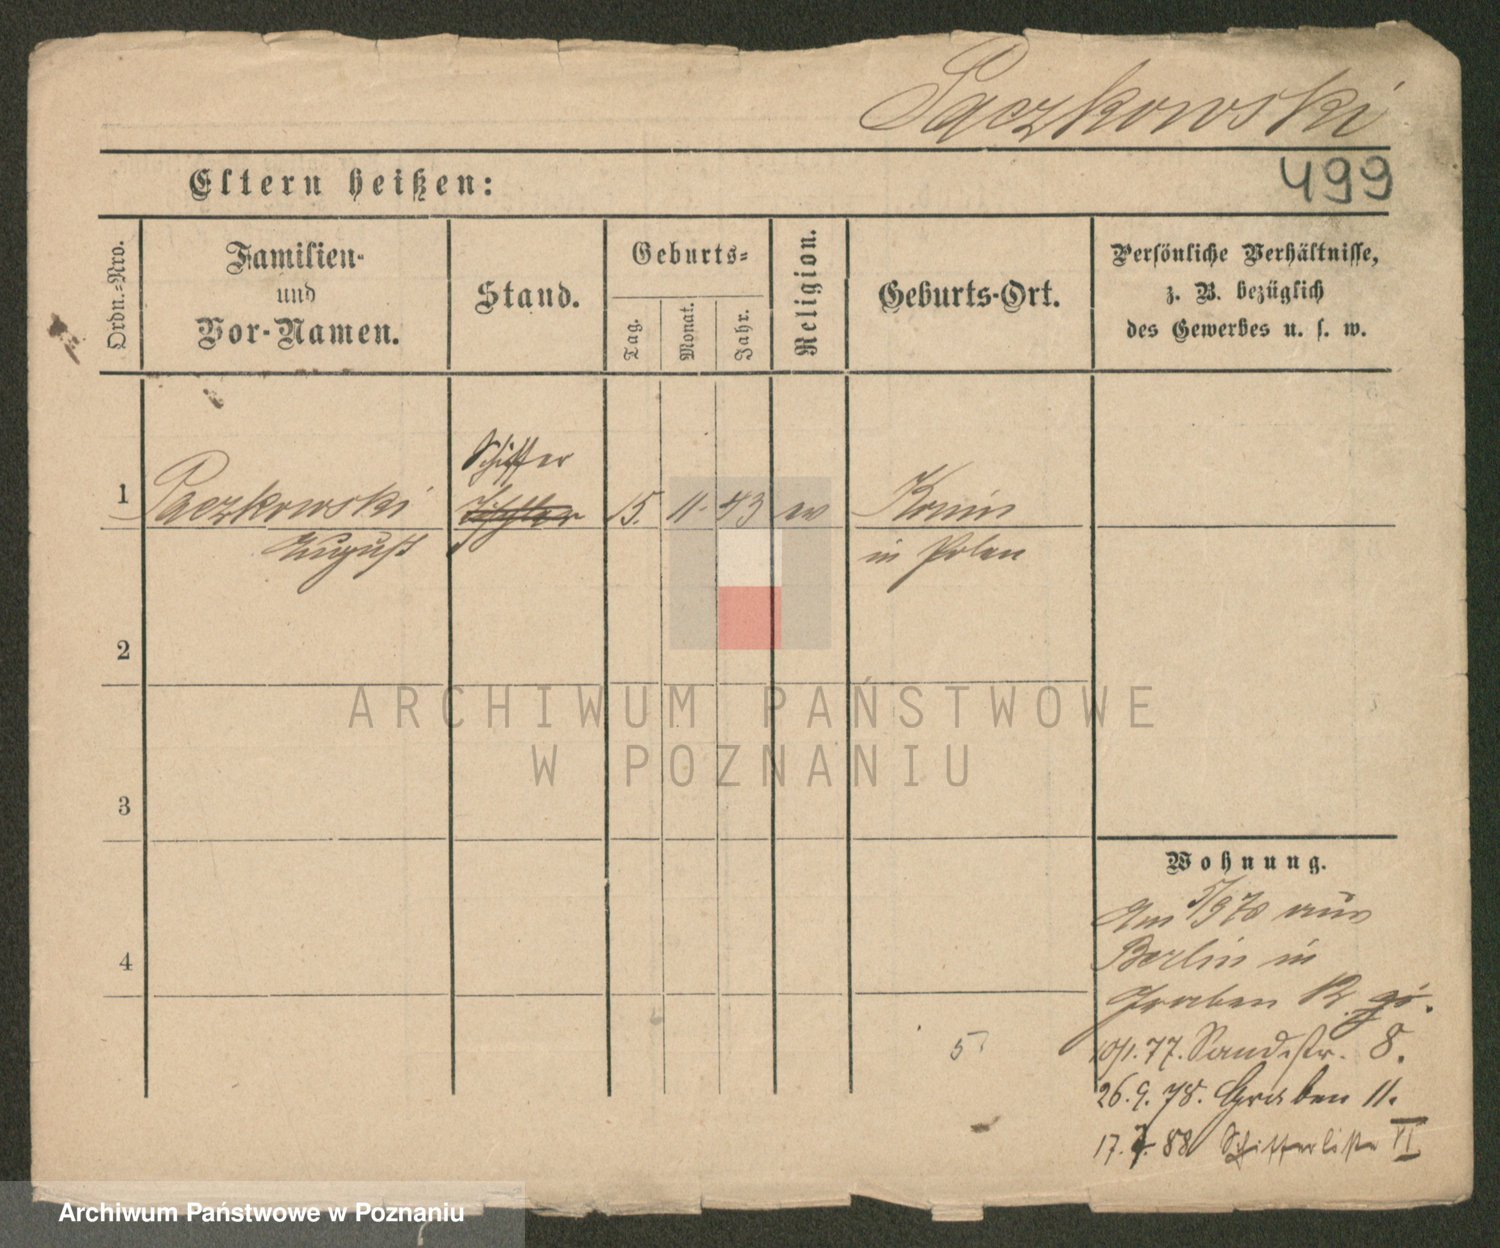 Paczkowski
499
Eltern heißen:
Ordn.-Nro.
Familien-
und
Vor-Namen.
Stand.
Geburts-
Tag.
Monat.
Jahr.
Religion.
Geburts-Ort.
Persönliche Verhältnisse,
z. B. bezüglich
des Gewerbes u. s. w.
Schiffer
1 Paczkowski 15. 11. 43 ev Konin
August in Polen
2
3
4
ARCHIWUM PAŃSTWOWE
W POZNANIU
Wohnung.
Am 5/9 76 aus
Berlin in
Graben
10/1. 77. Sandstr. 8.
26. 9. 78. Graben 11.
17. 88 Schifferliste VI
5
Archiwum Państwowe w Poznaniu